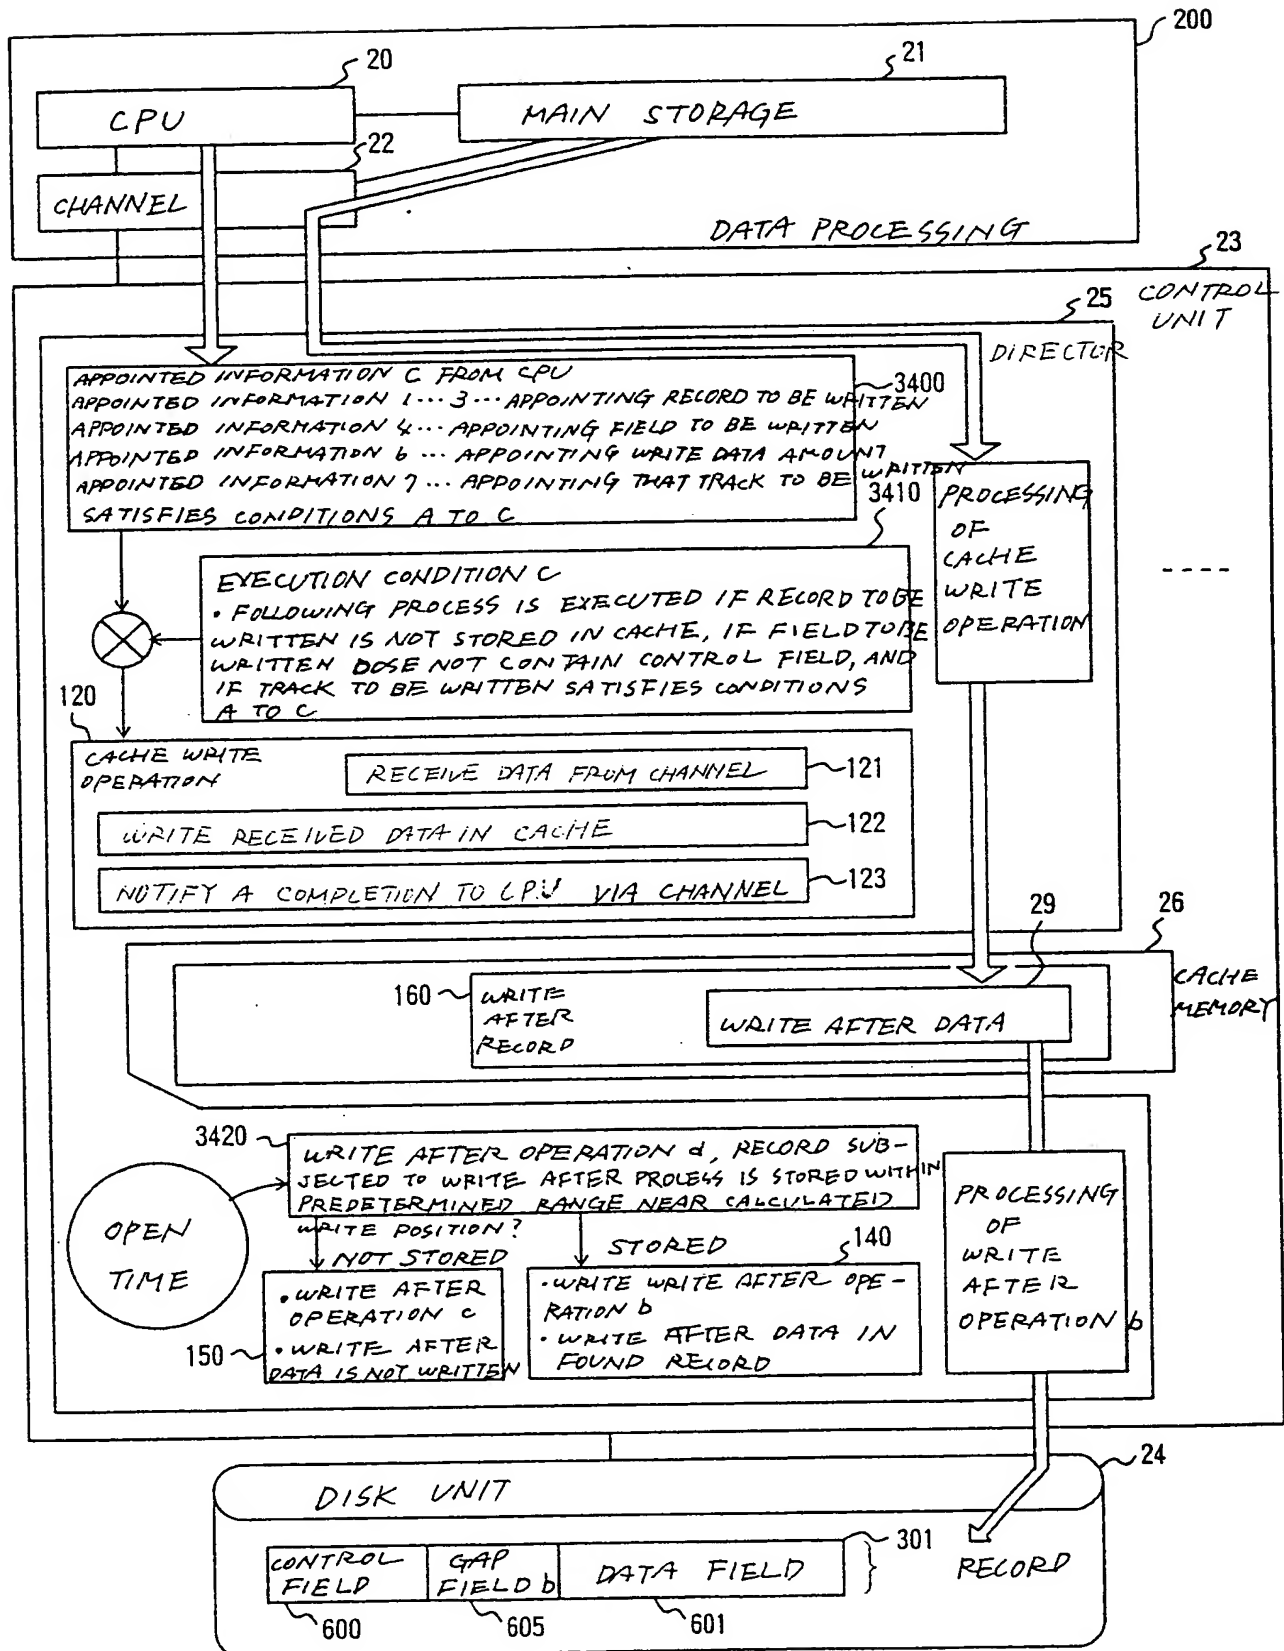 200
20
21
CPU
MAIN STORAGE
22
CHANNEL
DATA PROCESSING
23
CONTROL
UNIT
25
DIRECTOR
APPOINTED INFORMATION C FROM CPU
APPOINTED INFORMATION 1 ... 3 ... APPOINTING RECORD TO BE WRITTEN
APPOINTED INFORMATION 4 ... APPOINTING FIELD TO BE WRITTEN
APPOINTED INFORMATION 6 ... APPOINTING WRITE DATA AMOUNT
APPOINTED INFORMATION 7 ... APPOINTING THAT TRACK TO BE WRITTEN
SATISFIES CONDITIONS A TO C
3400
3410
PROCESSING
OF
CACHE
WRITE
OPERATION
----
EXECUTION CONDITION C
• FOLLOWING PROCESS IS EXECUTED IF RECORD TO BE
WRITTEN IS NOT STORED IN CACHE, IF FIELD TO BE
WRITTEN DOSE NOT CONTAIN CONTROL FIELD, AND
IF TRACK TO BE WRITTEN SATISFIES CONDITIONS
A TO C
120
CACHE WRITE
OPERATION
RECEIVE DATA FROM CHANNEL
121
WRITE RECEIVED DATA IN CACHE
122
NOTIFY A COMPLETION TO CPU VIA CHANNEL
123
29
26
CACHE
MEMORY
160
WRITE
AFTER
RECORD
WRITE AFTER DATA
3420
WRITE AFTER OPERATION d, RECORD SUB-
JECTED TO WRITE AFTER PROCESS IS STORED WITHIN
PREDETERMINED RANGE NEAR CALCULATED
WRITE POSITION?
OPEN
TIME
NOT STORED
STORED
140
• WRITE AFTER
OPERATION c
• WRITE AFTER
DATA IS NOT WRITTEN
150
• WRITE WRITE AFTER OPE-
RATION b
• WRITE AFTER DATA IN
FOUND RECORD
PROCESSING
OF
WRITE
AFTER
OPERATION b
24
DISK UNIT
301
CONTROL
FIELD
GAP
FIELD b
DATA FIELD
RECORD
600
605
601